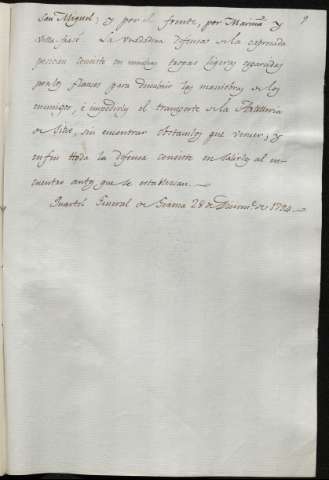 San Miguel; y por el frente, por Mariña y
Villa fasi. La verdadera defensa de la expresada
posicion consite en muchas tropas ligeras esparcidas
por los flancos para descubrir las maniobras de los
enemigos, è impedirles el transporte de la Artilleria
de Sitio, sin encontrar obstaculos que vencer; y
en fin toda la difensa consite en salirles al en-
cuentro antes que se establezcan.
Quartel General de 28 de Diciemᵉ. de 1794.